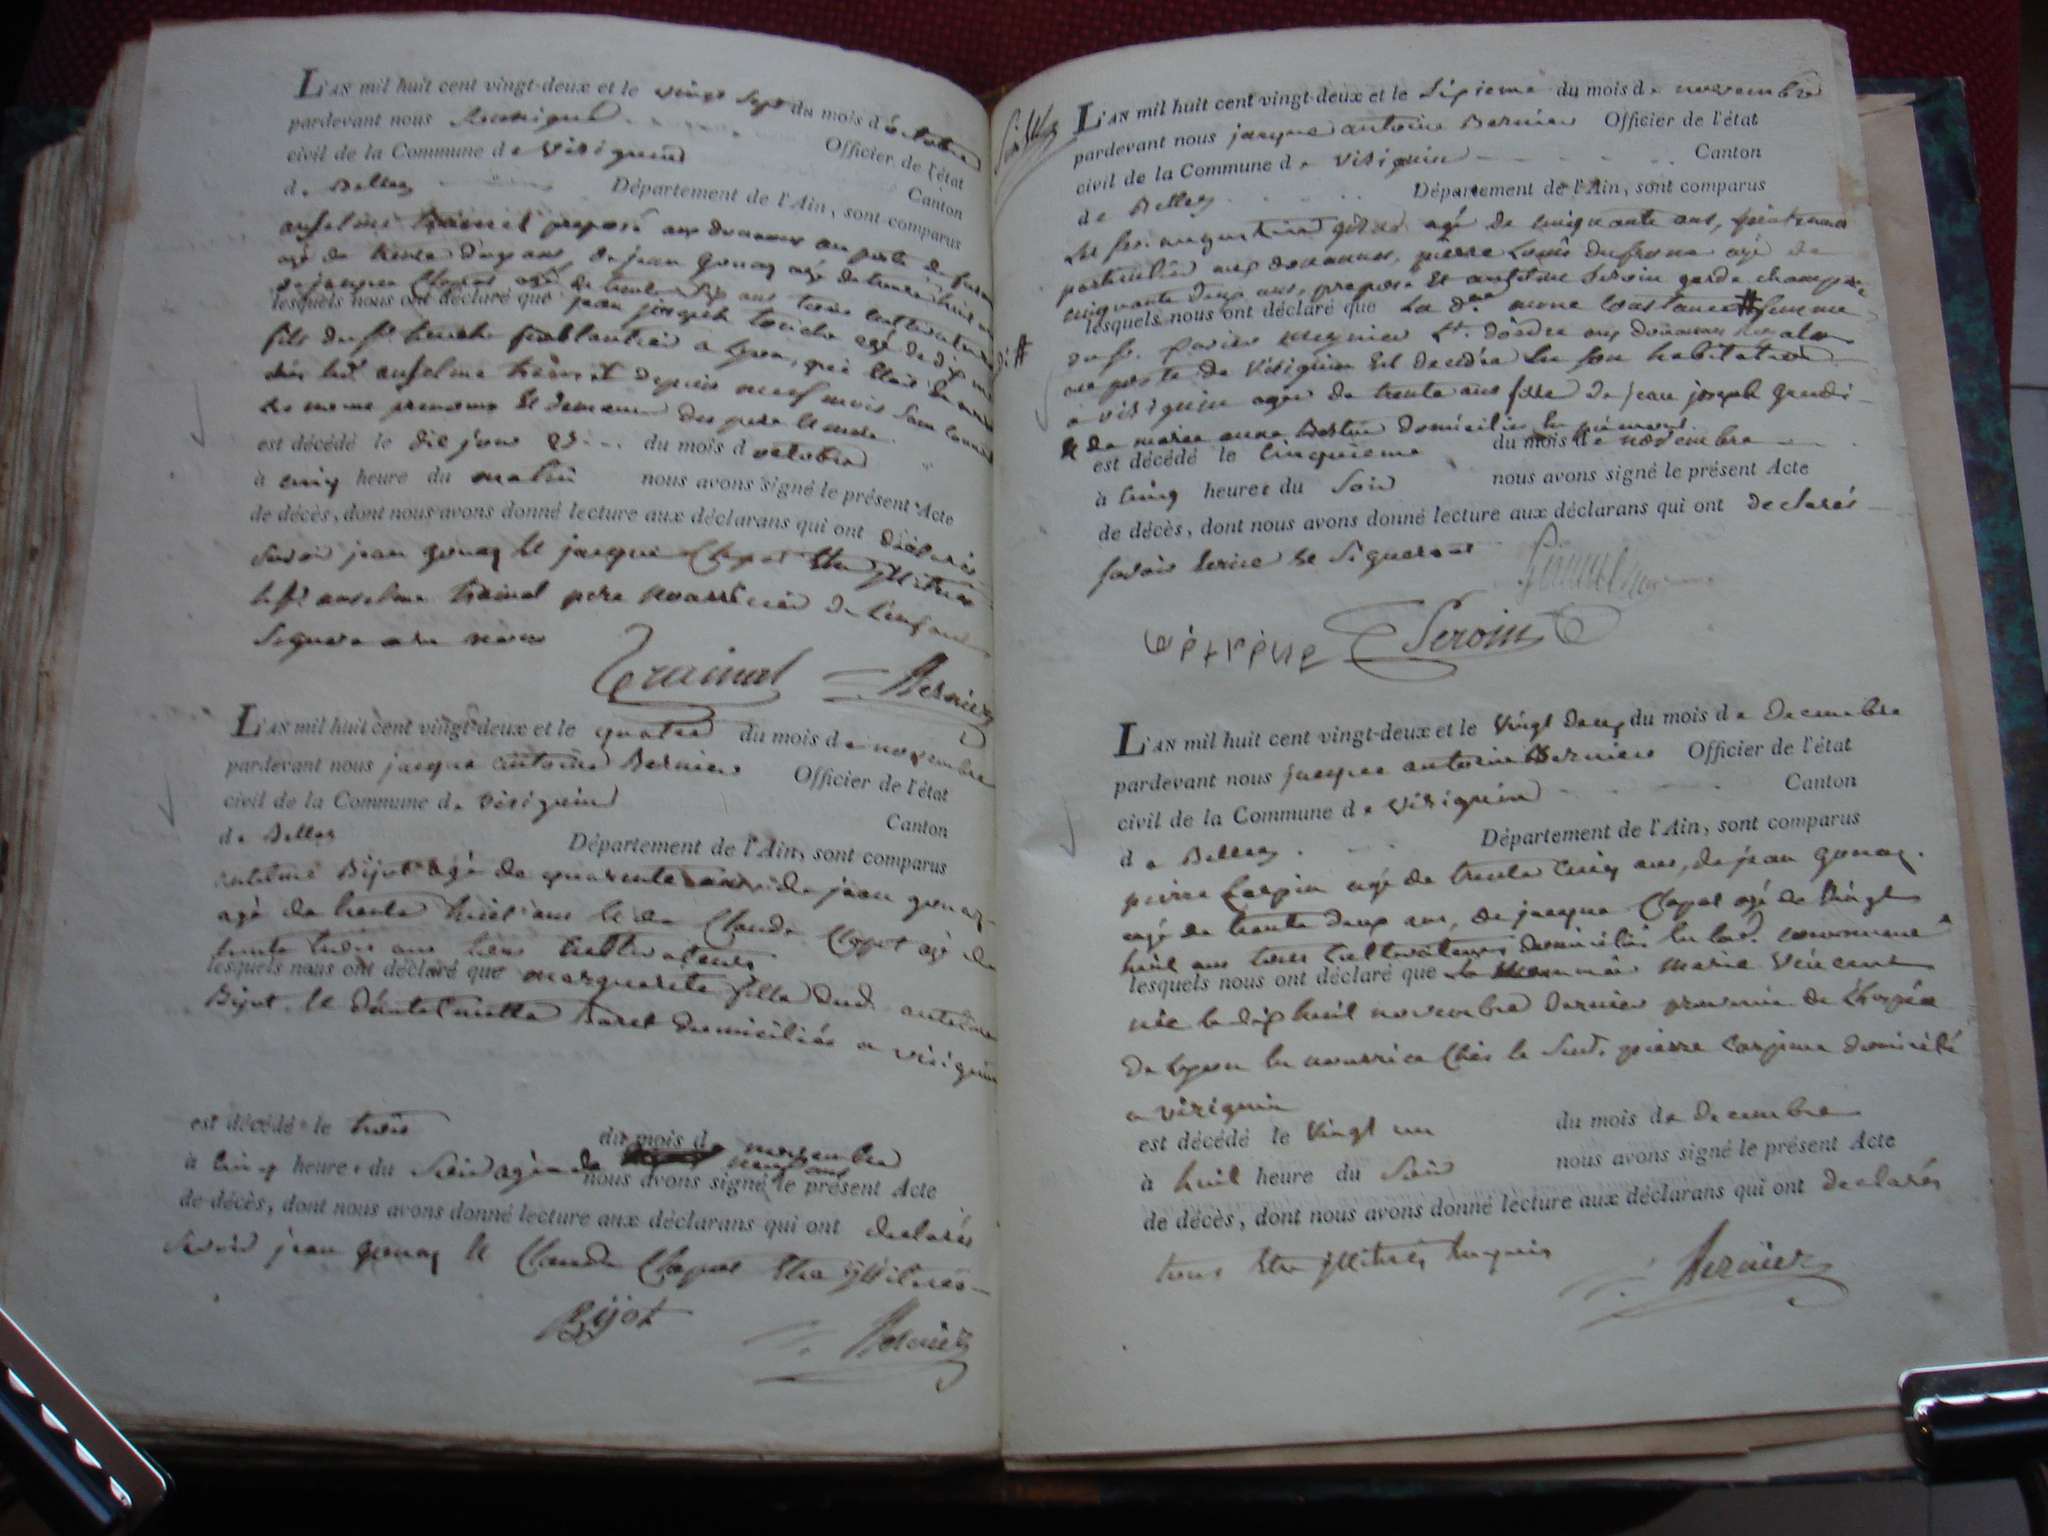 L'AN mil huit cent vingt-deux et le vingt sept du mois d'octobre
pardevant nous soussigné Officier de l'état
civil de la Commune de virignin Canton
de Belley Département de l'Ain, sont comparus
anselme trainet preposé aux douanes au poste de
agé de trente ans, de jean gonaz agé de trente huit
de jacques Clopot agé de trente six ans tous cultivateurs
lesquels nous ont déclaré que jean joseph agé de dix
fils du sr. a lyon, qui était en
chés led. anselme trainet depuis neuf mois sans
les noms prenoms et demeure des pere et mere
est décédé le dit jour du mois d octobre
à cinq heure du matin nous avons signé le présent Acte
de décès, dont nous avons donné lecture aux déclarans qui ont déclarés
savoir jean gonaz et jacque Clopot etre illitérés
le sr. anselme trainet pere nourricier de l'enfant
signera avec nous
Trainet Bernier
L'AN mil huit cent vingt-deux et le quatre du mois de novembre
pardevant nous jacque antoine Bernier Officier de l'état
civil de la Commune de virignin Canton
de Belley Département de l'Ain, sont comparus
antelme Bijot agé de quarente ans de jean gonaz
agé de trente huit ans et de Claude Clopot agé de
trente trois ans tous cultivateurs
lesquels nous ont déclaré que marguerite fille dud. antelme
Bijot et domiciliés a virignin
est décédé le trois du mois de novembre
à cinq heure du soir agée de neuf ans nous avons signé le présent Acte
de décès, dont nous avons donné lecture aux déclarans qui ont declarés
savoir jean gonaz et Claude Clopot etre illitérés
Bijot Bernier
L'AN mil huit cent vingt-deux et le sixieme du mois de novembre
pardevant nous jacque antoine Bernier Officier de l'état
civil de la Commune de virignin Canton
de Belley Département de l'Ain, sont comparus
les srs. augustin agé de cinquante ans, lieutenant
aux douanes, pierre Louis agé de
cinquante deux ans, preposé et antelme Seroin garde champetre
lesquels nous ont déclaré que La de. Constance # femme
du sr. Xavier meynier Lt. d'ordre aux douanes royales
au poste de virignin est decedée en son habitation
a virignin agée de trente ans fille de jean joseph
& de marie anne domiciliés en piémont
est décédé le cinquieme du mois de novembre
à cinq heures du soir nous avons signé le présent Acte
de décès, dont nous avons donné lecture aux déclarans qui ont declarés
savoir ecrire et signeront
Seroin
L'AN mil huit cent vingt-deux et le vingt deux du mois de decembre
pardevant nous jacques antoine Bernier Officier de l'état
civil de la Commune de virignin Canton
de Belley Département de l'Ain, sont comparus
pierre Carpin agé de trente cinq ans, de jean gonaz
agé de trente deux ans, de jacque Clopot agé de vingt
huit ans tous cultivateurs domiciliés en lad. commune
lesquels nous ont déclaré que marie vincent
née le dix huit novembre dernier provenue de l'hospice
de Lyon en nourrice chés le sud. pierre Carpin domicilié
a virignin
est décédé le vingt un du mois de decembre
à huit heure du soir nous avons signé le présent Acte
de décès, dont nous avons donné lecture aux déclarans qui ont declarés
tous etre illitérés requis
Bernier